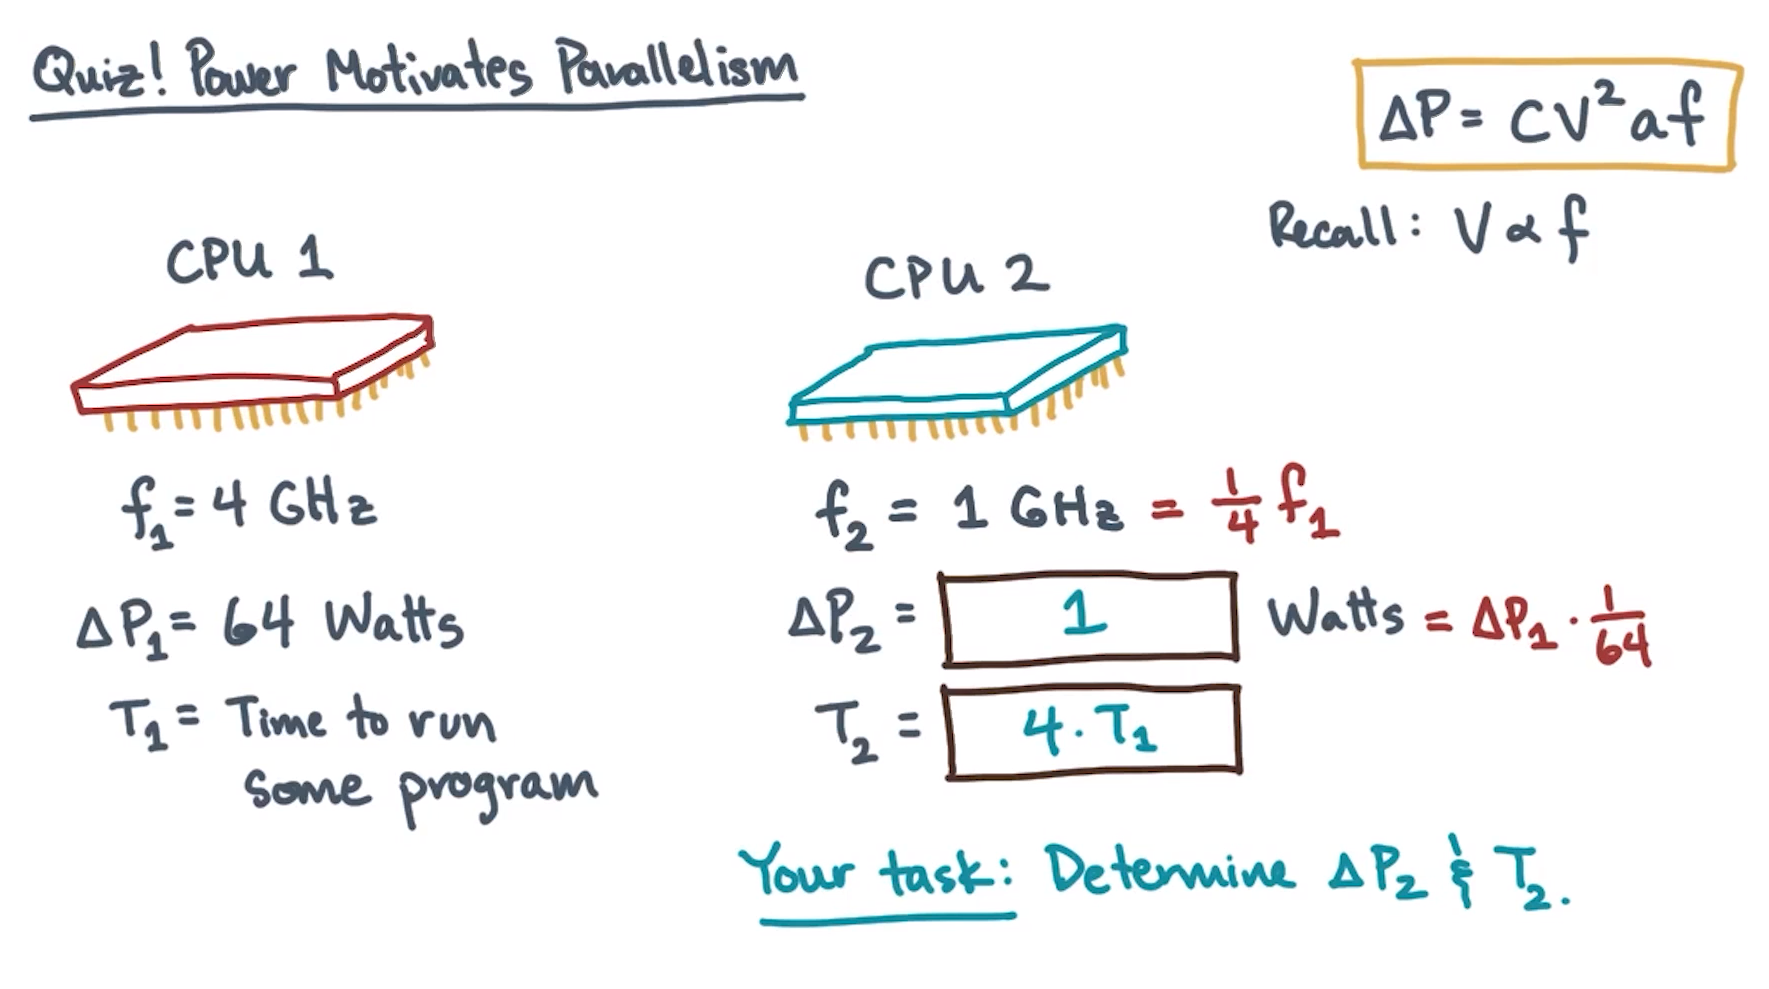 Quiz! Power Motivates Parallelism
ΔP = CV²af
Recall: V ∝ f
CPU 1
f₁ = 4 GHz
ΔP₁ = 64 Watts
T₁ = Time to run
some program
CPU 2
f₂ = 1 GHz = 1/4 f₁
ΔP₂ = 1 Watts = ΔP₁ · 1/64
T₂ = 4 · T₁
Your task: Determine ΔP₂ & T₂.